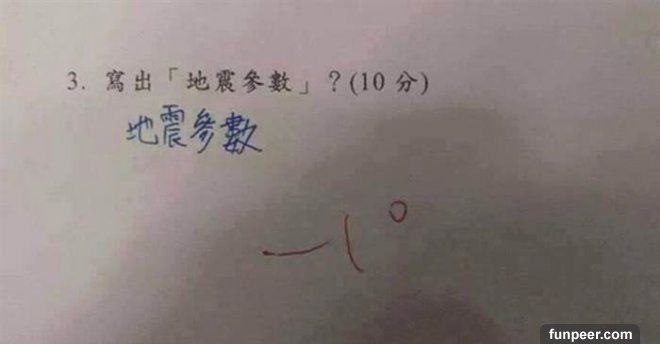 3. 寫出「地震參數」？(10 分)
地震參數
-10
funpeer.com